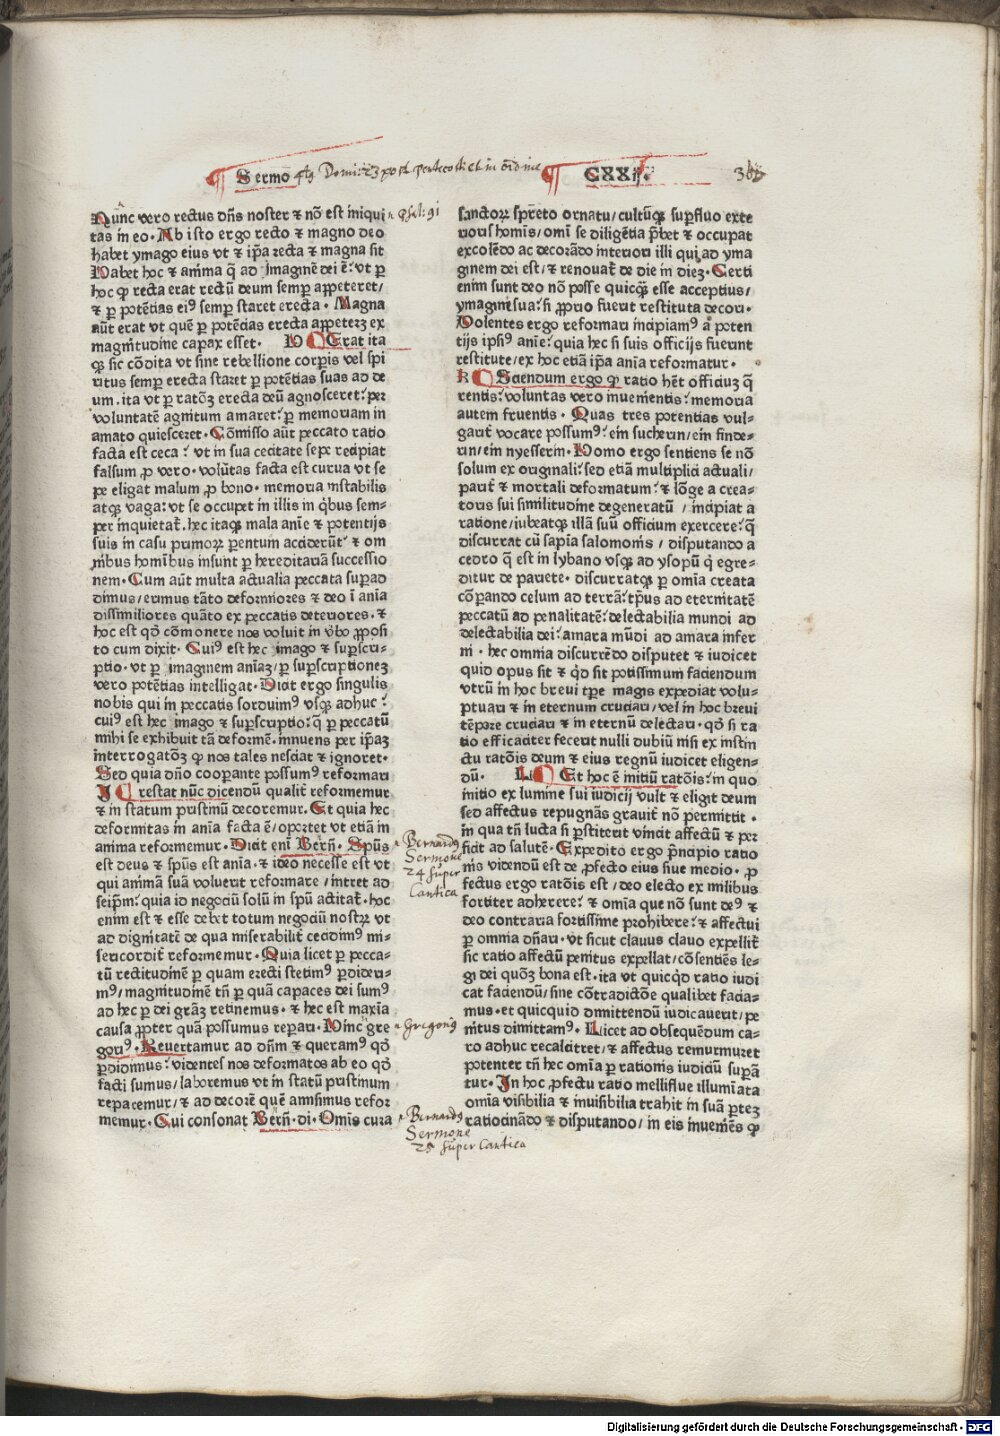 Sermo
CXXij.
Nunc vero rectus dn̄s noster ⁊ nō est iniqui
tas in eo. Ab isto ergo recto ⁊ magno deo
habet ymago eius vt ⁊ ip̄a recta ⁊ magna sit
Habet hoc ⁊ anima q̄ ad imaginē dei ē. vt ꝑ
hoc ꝙ recta erat rectū deum semꝑ appeteret/
⁊ ꝑ potētias eiꝰ semꝑ staret erecta. Magna
aūt erat vt quē ꝑ potētias erecta appeterꝫ ex
magnitudine capax esset. Erat ita
ꝙ sic cōdita vt sine rebellione corꝑis vel spi
ritus semꝑ erecta staret ꝑ potētias suas ad de
um. ita vt ꝑ ratōꝫ erecta deū agnosceret: per
voluntatē agnitum amaret: ꝑ memoriam in
amato quiesceret. Cōmisso aūt peccato ratio
facta est ceca: vt in sua cecitate sepe recipiat
falsum ꝓ vero. volūtas facta est curua vt se
pe eligat malum ꝓ bono. memoria instabilis
atqꝫ vaga: vt se occupet in illis in qͥbus sem⸗
per inquietat̄. hec itaqꝫ mala anīe ⁊ potentijs
suis in casu primoꝝ parentum acciderūt: ⁊ om
nibus hominibus insunt ꝑ hereditariā successio
nem. Cum aūt multa actualia peccata suꝑad
dimus/erimus tāto deformiores ⁊ deo ī anīa
dissimiliores quāto ex peccatis deteriores. ⁊
hoc est qd̄ cōmonere nos voluit in v̄bo ꝓposi
to cum dixit. Cuiꝰ est hec imago ⁊ suꝑscri⸗
ptio. vt ꝑ imaginem anīaꝫ/ꝑ suꝑscriptionem
vero potētias intelligat. Dicat ergo singulis
nobis qui in peccatis sorduimꝰ vsqꝫ adhuc:
cuiꝰ est hec imago ⁊ suꝑscriptio: q̄ ꝑ peccatū
mihi se exhibuit tā deformē. innuens per ip̄aꝫ
interrogatōꝫ ꝙ nos tales nesciat ⁊ ignoret.
Sed quia dn̄o cooperante possumꝰ reformari
restat nūc dicendū qualit̄ reformemur
⁊ in statum pristinū decoremur. Et quia hec
deformitas in anīa facta ē/oportet vt etiā in
anima reformemur. Dicit enī Bern̄. Spūs
est deus ⁊ spūs est anīa. ⁊ ideo necesse est vt
qui animā suā voluerit reformare/intret ad
seip̄m: quia id negociū solū in spū actitat̄. hoc
enim est ⁊ esse debet totum negociū nostꝝ vt
ad dignitatē de qua miserabilit̄ cecidimꝰ mi⸗
sericordit̄ reformemur. Quia licet ꝑ pecca⸗
tū rectitudinē ꝑ quam erecti stetimꝰ ꝑdideri⸗
mꝰ/magnitudinē tn̄ ꝑ quā capaces dei sumꝰ
ad hec ꝑ dei grāꝫ retinemus. ⁊ hec est maxīa
causa ꝓpter quā possumus reparari. Hinc gre
goriꝰ. Reuertamur ad dn̄m ⁊ queramꝰ qd̄
ꝑdidimus: videntes nos deformatos ab eo qd̄
facti sumus/laboremus vt in statū pristinum
repacemur/⁊ ad decorē quē amisimus refor
memur. Cui consonat Bern̄. di. Omīs cura
sanctoꝝ spreto ornatu/cultūqꝫ suꝑfluo exte
rioris homīs/omī se diligētia p̄bet ⁊ occupat
excolēdo ac decorādo interiori illi qui ad yma
ginem dei est/⁊ renouat̄ de die in dieꝫ. Certi
enim sunt deo nō posse quicqͣꝫ esse acceptius/
ymagini sua: si ꝓprio fuerit restituta decori.
Volentes ergo reformari incipiamꝰ a poten
tijs ipsiꝰ anīe: quia hec si suis officijs fuerint
restitute/ex hoc etiā ip̄a anīa reformatur.
Sciendum ergo ꝙ ratio hēt officiuꝫ q̄
rentis: voluntas vero inuenientis: memoria
autem fruentis. Quas tres potentias vul⸗
garit̄ vocare possumꝰ: ein sucherin/ein finde⸗
rin/ein nyesserin. Homo ergo sentiens se nō
solum ex originali: sed etiā multiplici actuali/
parit̄ ⁊ mortali deformatum: ⁊ lōge a crea⸗
toris sui similitudine degeneratū/incipiat a
ratione/iubeatqꝫ illā suū officium exercere: q̄
discurrat cū sapīa salomonis/disputando a
cedro q̄ est in lybano vsqꝫ ad ysopū q̄ egre⸗
ditur de pariete. discurratqꝫ ꝑ omīa creata
cōꝑando celum ad terrā: tp̄us ad eternitatē
peccatū ad penalitatē: delectabilia mundi ad
delectabilia dei: amara mūdi ad amara infer
ni. hec omnia discurrēdo disputet ⁊ iudicet
quid opus sit ⁊ qd̄ sit potissimum faciendum
vtrū in hoc breui tꝑe magis expediat volu⸗
ptuari ⁊ in eternum cruciari/vel in hoc breui
tēpore cruciari ⁊ in eternū delectari. qd̄ si ra
tio efficaciter fecerit nulli dubiū nisi ex instin
ctu ratōis deum ⁊ eius regnū iudicet eligen⸗
dū. L Et hoc ē initiū ratōis: in quo
initio ex lumine sui iudicij vult ⁊ eligit deum
sed affectus repugnās grauit̄ nō permittit.
in qua tn̄ lucta si ꝑstiterit vincit affectū ⁊ per
ficit ad salutē. Expedito ergo pͥncipio ratio
nis videndū est de ꝓfecto eius siue medio. ꝓ
fectus ergo ratōis est/deo electo ex milibus
fortiter adherere: ⁊ omīa que nō sunt deꝰ ⁊
deo contraria fortissime prohibere: ⁊ affectui
ꝑ omnia dn̄ari. vt sicut clauus clauo expellit̄
sic ratio affectū penitus expellat/cōsentiēs le⸗
gi dei quōꝫ bona est. ita vt quicqͥd ratio iudi
cat faciendū/sine cōtradictōe qualibet facia⸗
mus. et quicquid dimittendū iudicauerit/pe
nitus dimittamꝰ. Licet ad obsequēdum ca⸗
ro adhuc recalcitret/⁊ affectus remurmuret
potenter tn̄ hec omīa ꝑ rationis iudiciū suꝑā
tur. In hoc ꝓfectu ratio melliflue illumīata
omīa visibilia ⁊ inuisibilia trahit in suā ꝑteꝫ
ratiocinādo ⁊ disputando/in eis inueniēs ꝙ
Bernardꝰ
Sermone
24 super
Cantica
Gregoriꝰ
Bernardꝰ
Sermone
25 super Cantica
Digitalisierung gefördert durch die Deutsche Forschungsgemeinschaft - DFG